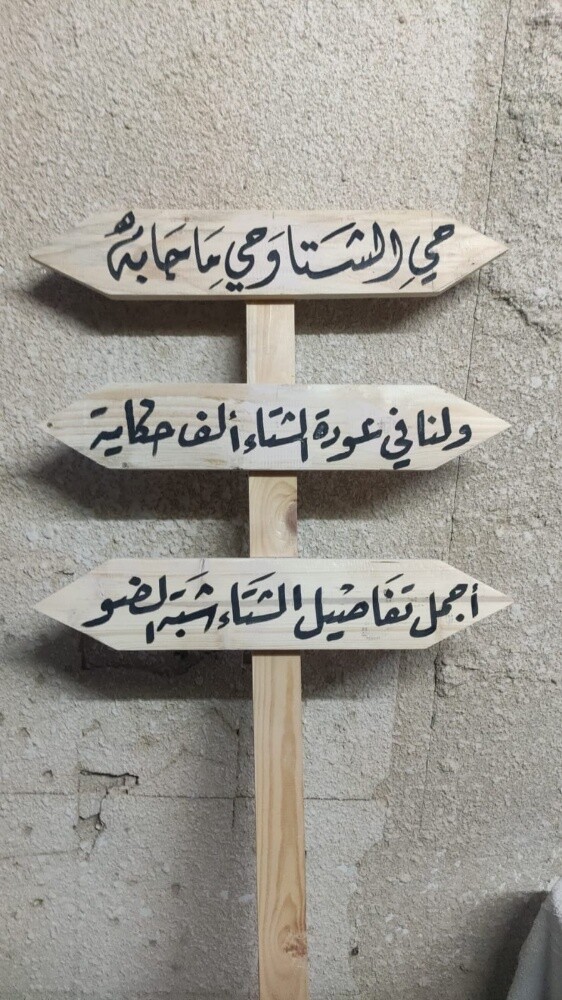 حي الشتا وحي ما جابه
ولنا في عودة الشتاء ألف حكاية
أجمل تفاصيل الشتاء شبة الضو